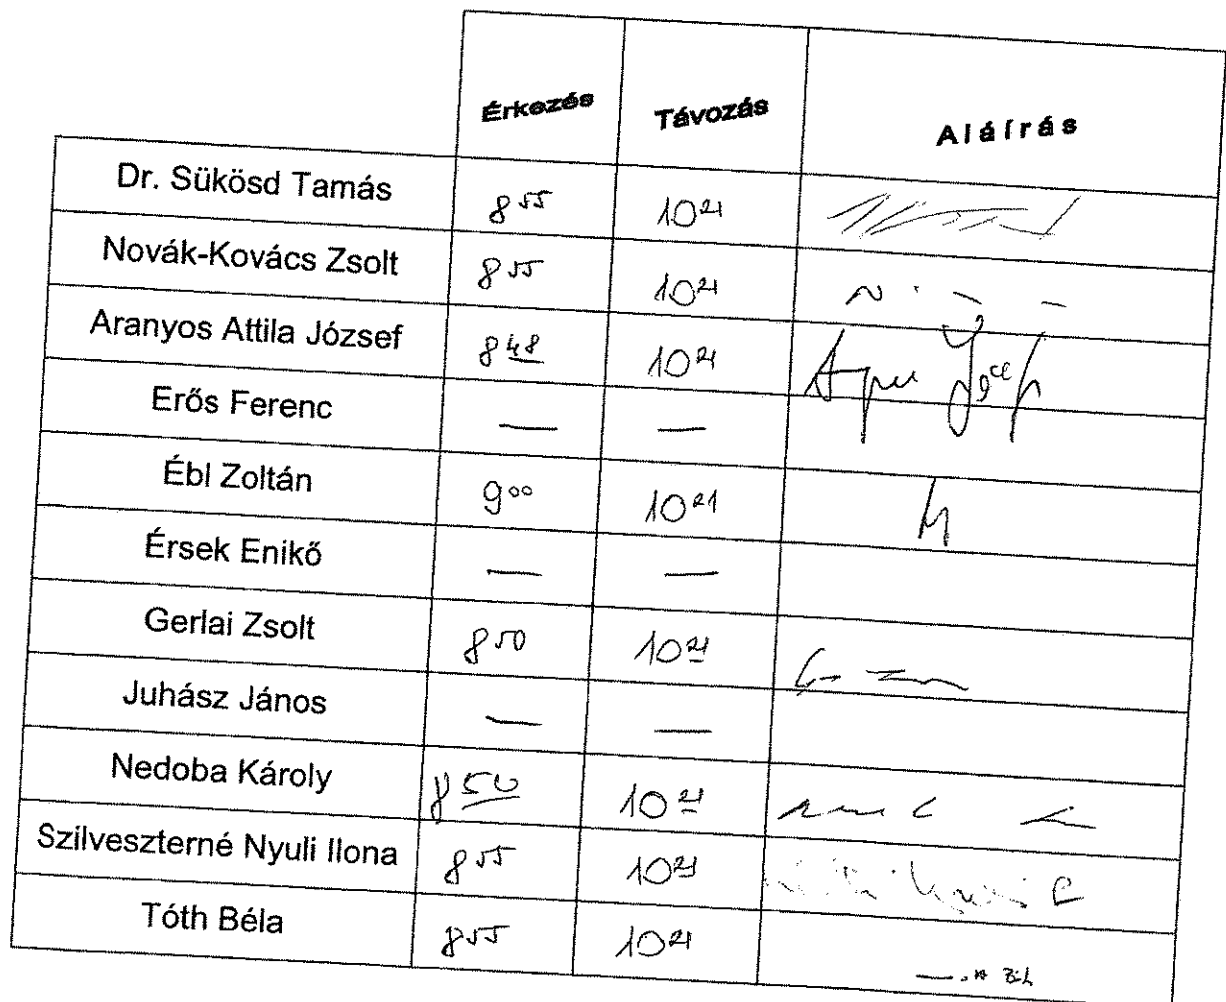 Érkezés Távozás Aláírás
Dr. Sükösd Tamás 8 55 10 21
Novák-Kovács Zsolt 8 55 10 21
Aranyos Attila József 8 48 10 21
Erős Ferenc — —
Ébl Zoltán 9 00 10 21
Érsek Enikő — —
Gerlai Zsolt 8 50 10 21
Juhász János — —
Nedoba Károly 8 50 10 21
Szilveszterné Nyuli Ilona 8 55 10 21
Tóth Béla 8 55 10 21